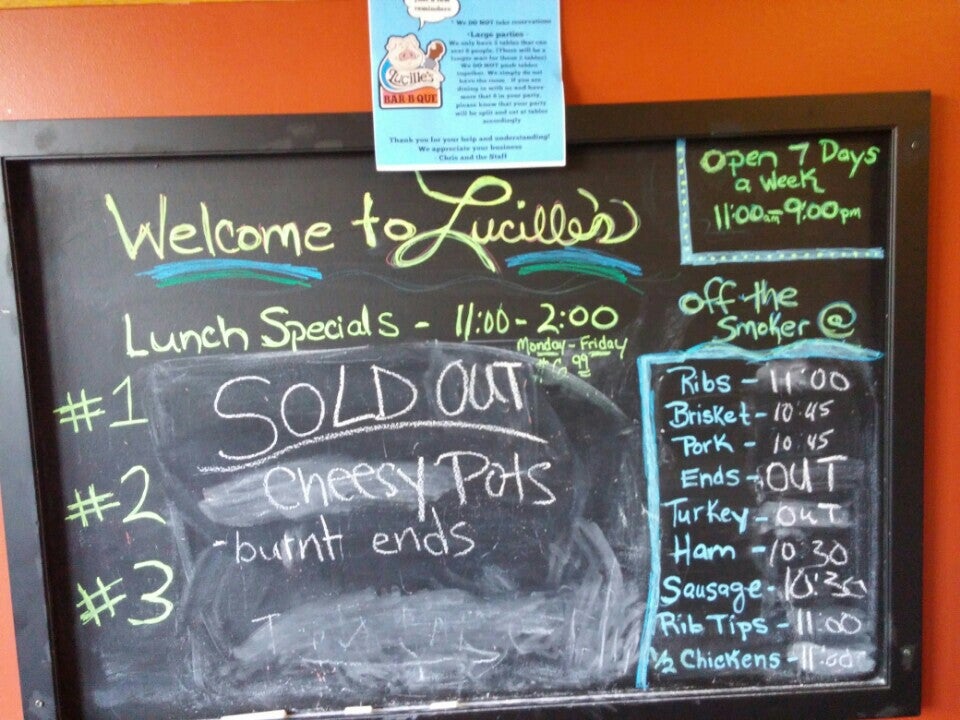 reminders
* We DO NOT take reservations
*Large parties -
We only have 2 tables that can
seat 6 people, (There will be a
longer wait for these 2 tables)
We DO NOT push tables
together. We simply do not
have the room. If you are
dining in with us and have
more that 6 in your party,
please know that your party
will be split and eat at tables
accordingly
Lucille's
BAR-B-QUE
Thank you for your help and understanding!
We appreciate your business
Chris and the Staff
Welcome to Lucille's
Open 7 Days
a week
11:00am-9:00pm
Lunch Specials - 11:00-2:00
Monday-Friday
$6.99
#1
#2
#3
SOLD OUT
Cheesy Pots
-burnt ends
Off the
Smoker @
Ribs - 11:00
Brisket - 10:45
Pork - 10:45
Ends - OUT
Turkey - OUT
Ham - 10:30
Sausage - 10:30
Rib Tips - 11:00
1/2 Chickens - 11:00